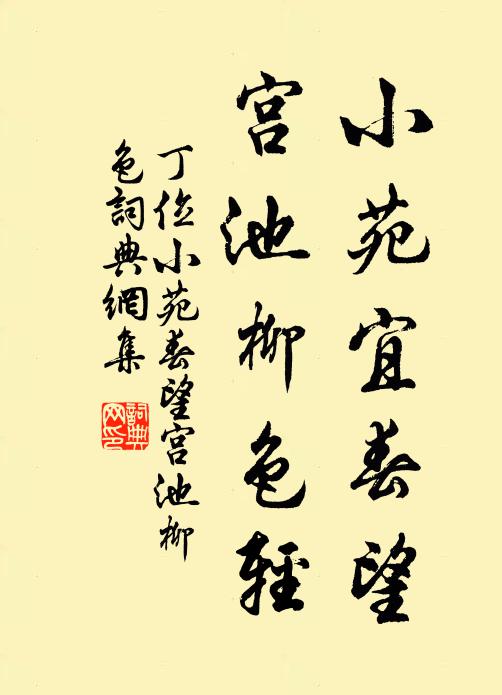 小苑宜春望
宮池柳色輕
丁位小苑春望宮池柳
色詞典網集
詞典
网印